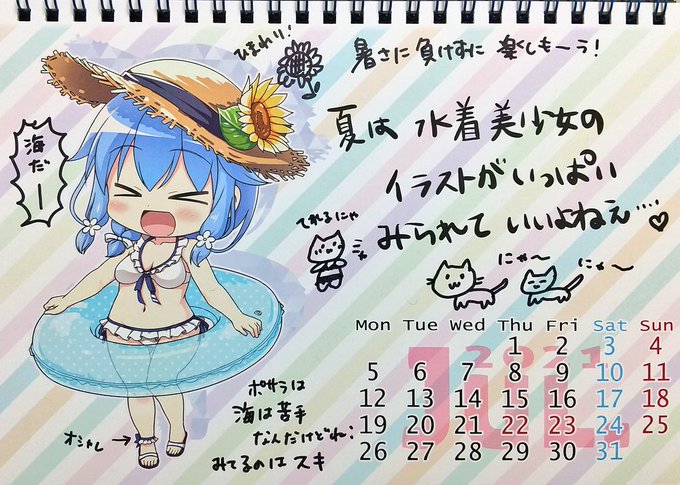 ひまわり!
暑さに負けずに 楽しもーう!
海だー
夏は 水着美少女の
イラストがいっぱい
みられて いいよねぇ…♡
てれるにゃ
にゃ〜
にゃ〜
Mon Tue Wed Thu Fri Sat Sun
2021
JUL
1 2 3 4
5 6 7 8 9 10 11
12 13 14 15 16 17 18
19 20 21 22 23 24 25
26 27 28 29 30 31
ポサラは
海は苦手
なんだけどね!
みてるのはスキ
オシャレ